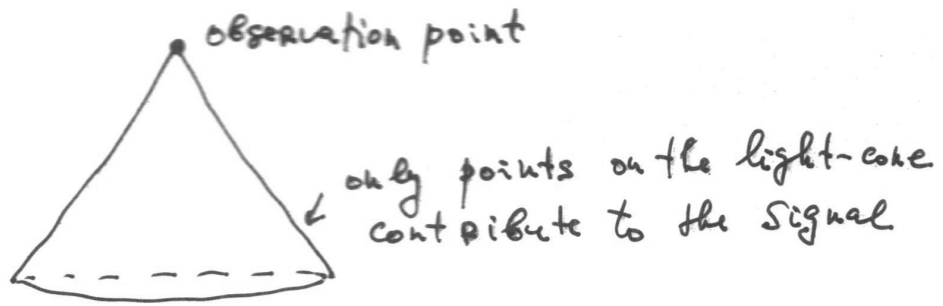 observation point
only points on the light-cone
contribute to the signal